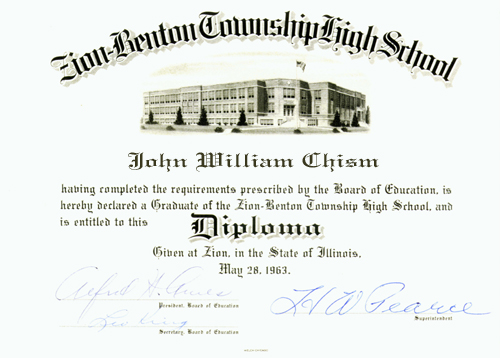 Zion-Benton Township High School
John William Chism
having completed the requirements prescribed by the Board of Education, is
hereby declared a Graduate of the Zion-Benton Township High School, and
is entitled to this Diploma
Given at Zion, in the State of Illinois,
May 28, 1963.
President, Board of Education
H W Pearce
Superintendent
Secretary, Board of Education